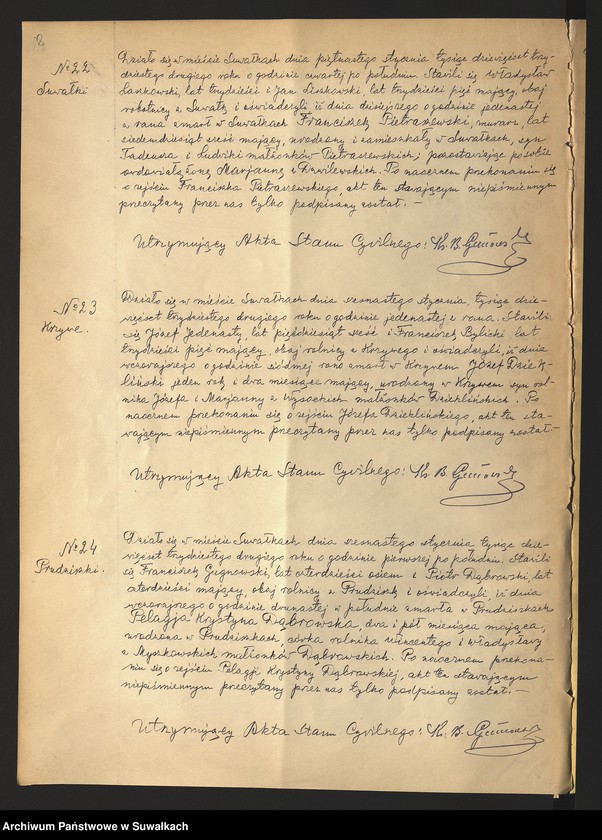 2
No 22
Suwałki
Działo się w mieście Suwałkach dnia piętnastego stycznia tysiąc dziewięćset trzy-
dziestego drugiego roku o godzinie czwartej po południu. Stawili się Władysław
lat trzydzieści i Jan lat trzydzieści pięć mający, obaj
robotnicy z Suwałk i oświadczyli iż dnia dzisiejszego o godzinie jedenastej
z rana zmarł w Suwałkach Franciszek Pietraszewski, murarz, lat
siedemdziesiąt sześć mający, urodzony i zamieszkały w Suwałkach, syn
Tadeusza i Ludwiki małżonków Pietraszewskich; pozostawiając po sobie
owdowiałą żonę Marjannę z. Po naocznem przekonaniu się
o zejściu Franciszka Pietraszewskiego, akt ten stawającym niepiśmiennym
przeczytany przez nas tylko podpisany został. —
Utrzymujący Akta Stanu Cywilnego: Ks. B.
No 23
Krzywe.
Działo się w mieście Suwałkach dnia szesnastego stycznia, tysiąc dzie-
więćset trzydziestego drugiego roku o godzinie jedenastej z rana. Stawili
się Józef Jedenasty, lat pięćdziesiąt sześć i Franciszek lat
trzydzieści pięć mający, obaj rolnicy z Krzywego i oświadczyli, iż dnia
wczorajszego o godzinie siódmej rano zmarł w Krzywem Józef Dziekliński
jeden rok i dwa miesiące mający, urodzony w Krzywem syn rol-
nika Józefa i Marjanny z Wysockich małżonków Dzieklińskich. Po
naocznem przekonaniu się o zejściu Józefa Dzieklińskiego, akt ten sta-
wającym niepiśmiennym przeczytany przez nas tylko podpisany został. —
Utrzymujący Akta Stanu Cywilnego: Ks. B.
No 24
Prudziszki.
Działo się w mieście Suwałkach dnia szesnastego stycznia tysiąc dzie-
więćset trzydziestego drugiego roku o godzinie pierwszej po południu. Stawili
się Franciszek, lat czterdzieści osiem i Piotr Dąbrowski, lat
czterdzieści mający, obaj rolnicy z Prudziszk i oświadczyli, iż dnia
wczorajszego o godzinie dwunastej w południe zmarła w Prudziszkach
Pelagja Krystyna Dąbrowska, dwa i pół miesiąca mająca,
urodzona w Prudziszkach, córka rolnika Wincentego i Władysławy
z Myszkowskich małżonków Dąbrowskich. Po naocznem przekona-
niu się o zejściu Pelagji Krystyny Dąbrowskiej, akt ten stawającym
niepiśmiennym przeczytany przez nas tylko podpisany został. —
Utrzymujący Akta Stanu Cywilnego: Ks. B.
Archiwum Państwowe w Suwałkach